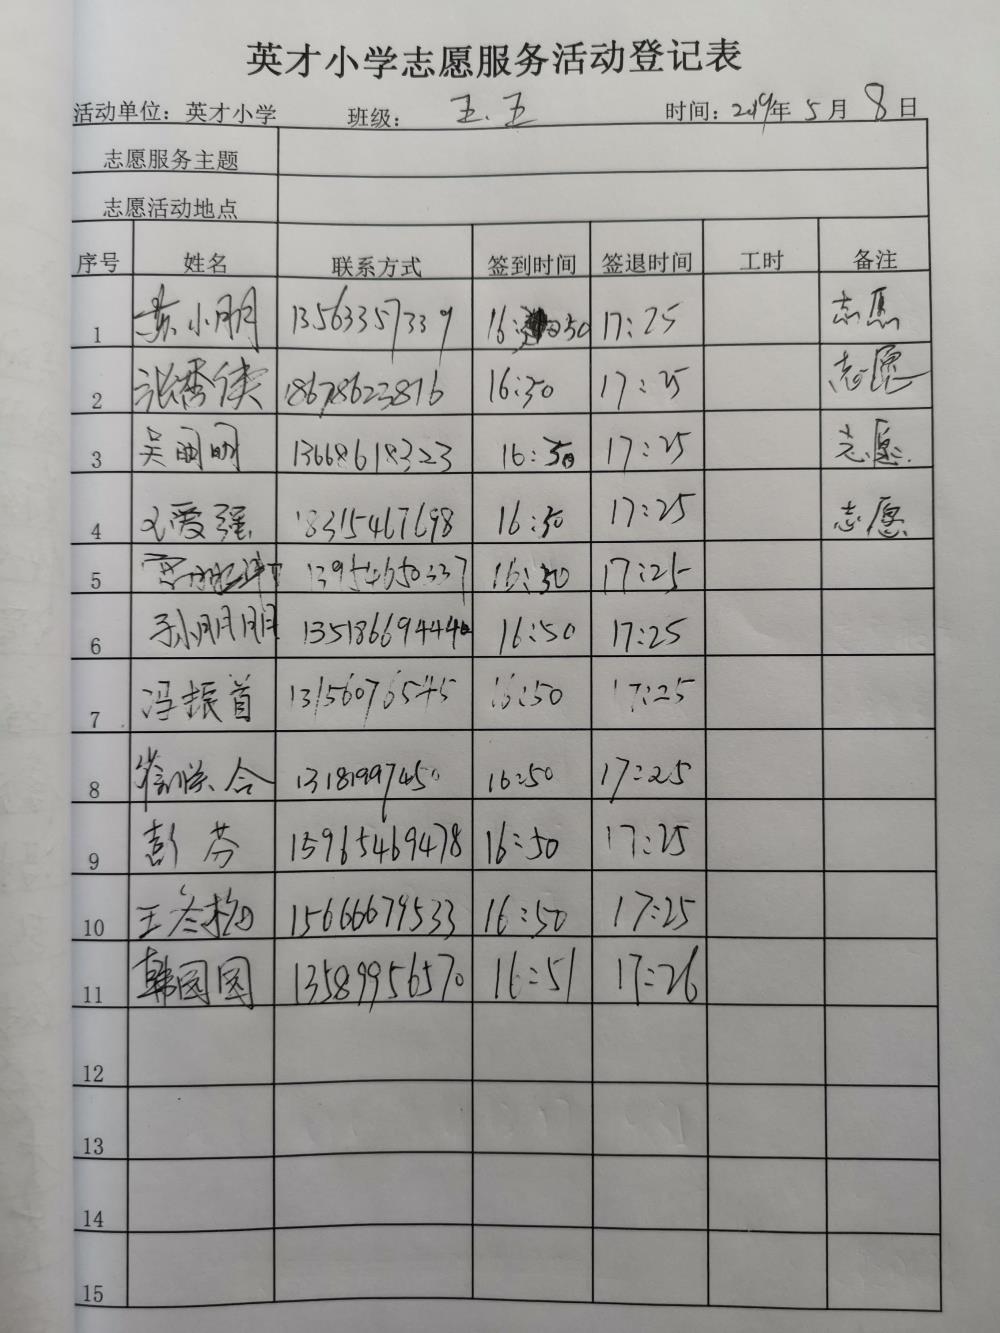 英才小学志愿服务活动登记表
活动单位：英才小学 班级：五.五 时间：2019年5月8日
志愿服务主题
志愿活动地点
序号 姓名 联系方式 签到时间 签退时间 工时 备注
1 小明 13563357339 16:50 17:25 志愿
2 张秀侠 18678623816 16:50 17:25 志愿
3 吴明明 13668618323 16:50 17:25 志愿
4 爱强 18315467698 16:50 17:25 志愿
5 13954650337 16:50 17:25
6 孙明明 13518669444 16:50 17:25
7 冯振首 13156076545 16:50 17:25
8 合 13181997450 16:50 17:25
9 彭芬 15965469478 16:50 17:25
10 王冬梅 15666679533 16:50 17:25
11 韩园园 13589956570 16:51 17:26
12
13
14
15